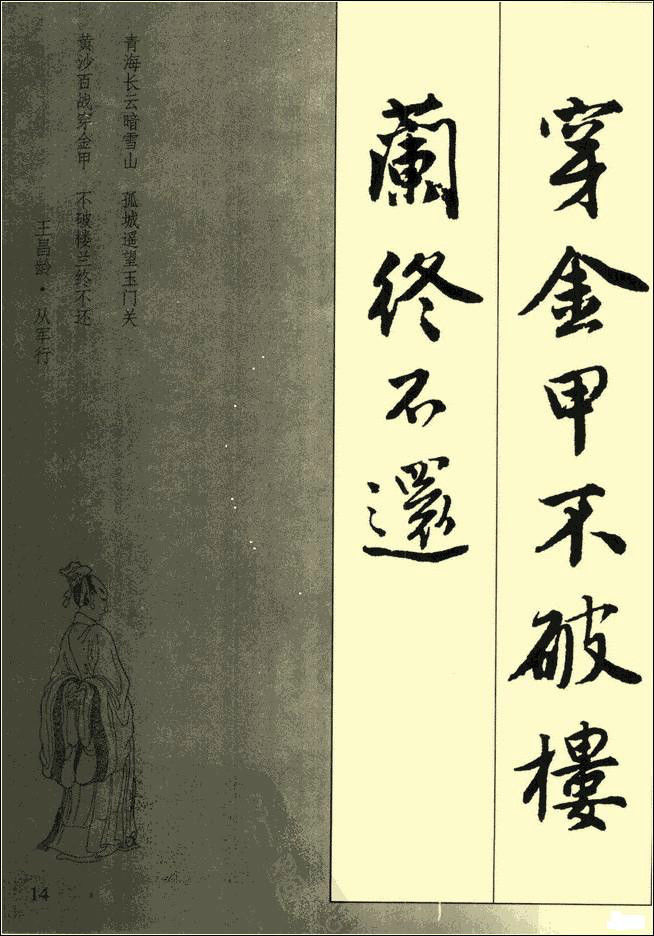 穿金甲不破樓
蘭終不還
青海长云暗雪山 孤城遥望玉门关
黄沙百战穿金甲 不破楼兰终不还
王昌龄·从军行
14